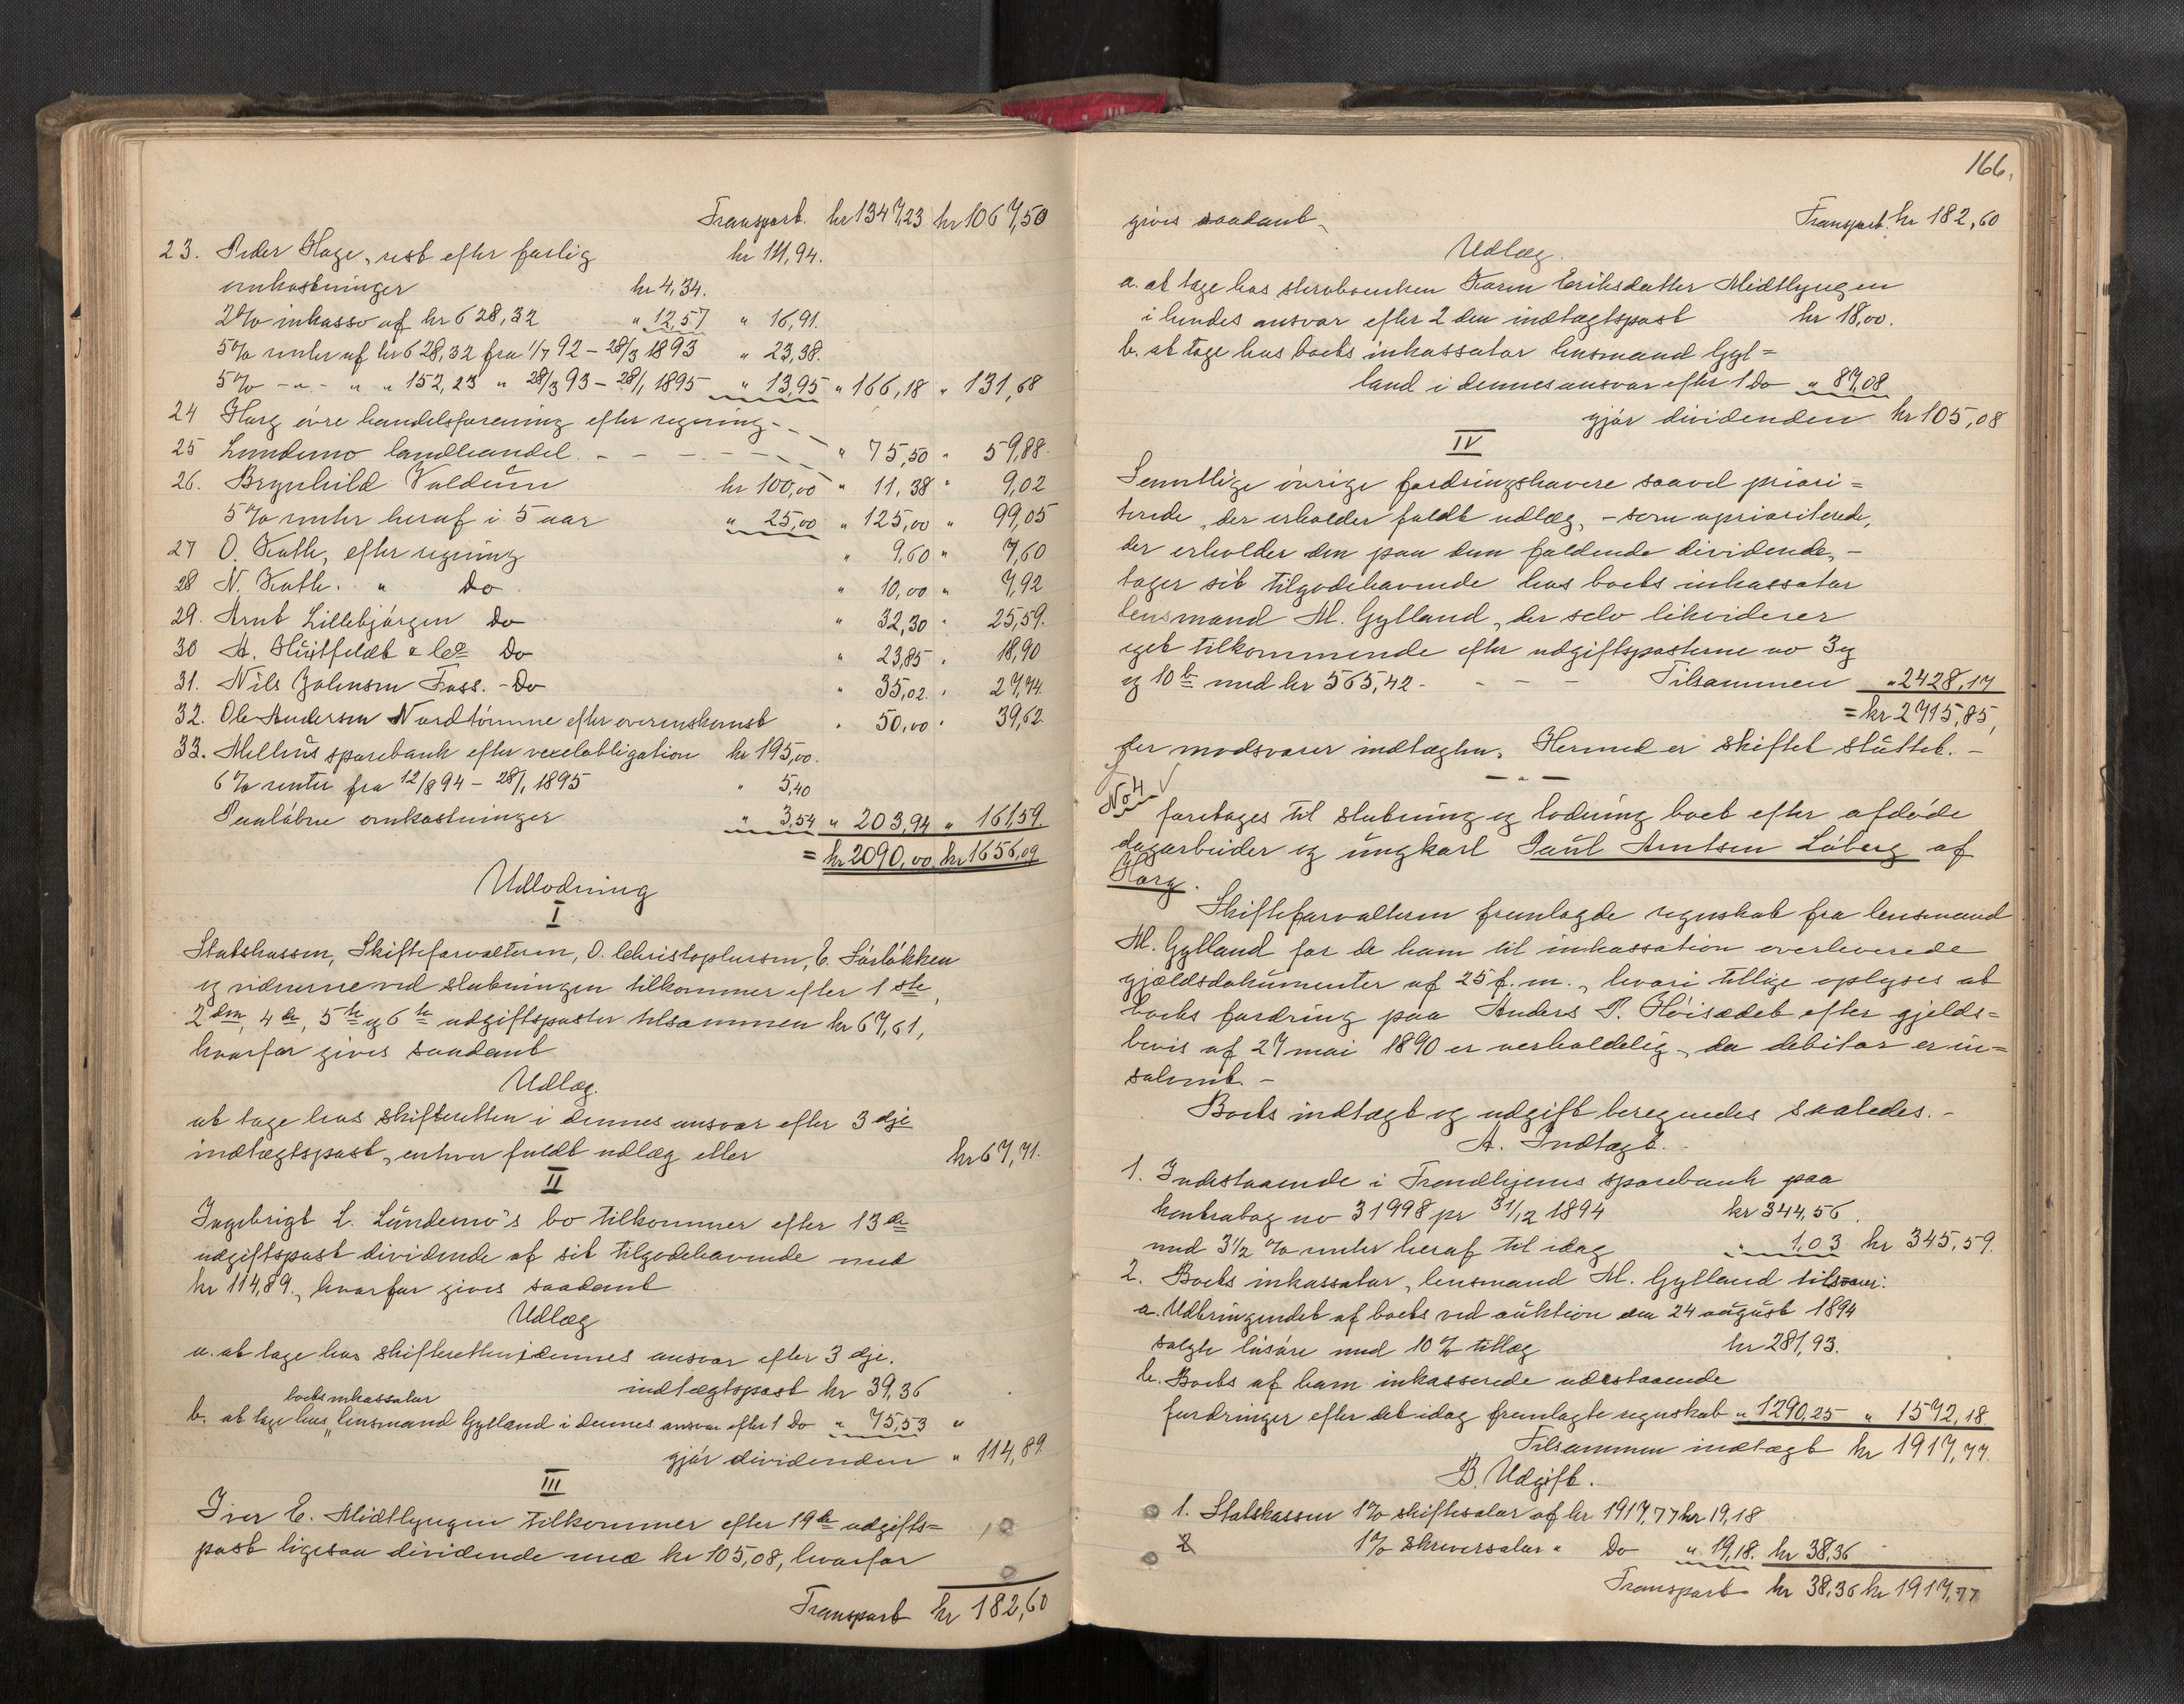 Transport. kr 1347,23 kr 1067,50
23. Peder Hage, rest efter forlig kr 111,94.
omkostninger kr 4,34.
2% inkasso af kr 628,32 " 12,57 " 16,91.
5% renter af kr 628,32 fra 1/7 92 - 28/3 1893 " 23,38.
5% - " - " " 152,23 " 28/3 93 - 28/1 1895 " 13,95 " 166,18 " 131,68
24 Horg øvre handelsforening efter regning - - " 75,50 " 59,88.
25 Lundemo landhandel. - - - - - " 11,38 " 9,02
26. Brynhild Valdum kr 100,00
5% renter heraf i 5 aar " 25,00 " 125,00 " 99,05
27 O. Kath, efter regning " 9,60 " 7,60
28 N. Kath. " Do " 10,00 " 7,92
29. Arnt Lillebjørgen Do " 32,30 " 25,59.
30 A. Huitfeldt & Co Do " 23,85 " 18,90
31. Nils Johnsen Foss. - Do " 35,02. " 27,74.
32. Ole Andersen Nordtømme efter overenskomst " 50,00 " 39,62.
33. Melhus sparebank efter vexelobligation kr 195,00.
6% renter fra 12/8 94 - 28/1 1895 " 5,40
Paaløbne omkostninger " 3,54 " 203,94 " 161,59.
= kr 2090,00 kr 1656,09
Udlodning
I
Statskassen, Skifteforvalteren, O. Christophersen, E. Sørløkken
og vidnerne ved slutningen tilkommer efter 1 ste,
2 den, 4 de, 5 te og 6 te udgiftsposter tilsammen kr 67,61,
hvorfor gives saadant
Udlæg.
at tage hos skifteretten i dennes ansvar efter 3 dje
indtægtspost, enhver fuldt udlæg eller kr 67,71.
II
Ingebrigt L. Lundemo's bo tilkommer efter 13 de
udgiftspost dividende af sit tilgodehavende med
kr 114,89., hvorfor gives saadant
Udlæg
a. at tage hos skifteretten i dennes ansvar efter 3 dje.
indtægtspost kr 39,36
boets inkassator
b. at tage hos " lensmand Gylland i dennes ansvar efter 1 Do " 75,53 "
gjør dividenden " 114,89.
III
Iver E. Midtlyngen tilkommer efter 19 de udgifts=
post ligesaa dividende med kr 105,08, hvorfor
Transport kr 182,60
166.
gives saadant Transport. kr 182,60
Udlæg.
a. at tage hos skrobænken Karen Eriksdatter Midtlyngen
i hendes ansvar efter 2 den indtægtspost kr 18,00.
b. at tage hos boets inkassator lensmand Gyl=
land i dennes ansvar efter 1 Do " 87,08
gjør dividenden kr 105,08
IV
Samtlige øvrige fordringshavere saavel priori=
terede, der erholder fuldt udlæg, - som uprioriterede,
der erholder den paa dem faldende dividende, -
tager sit tilgodehavende hos boets inkassator
lensmand M. Gylland, der selv likviderer
eget tilkommende efter udgiftsposterne no 3 og
og 10 b med kr 565,42 - - - - Tilsammen " 2428,17
= kr 2715,85,
der modsvarer indtægten. Hermed er skiftet sluttet. -
- " -
No 4 foretages til slutning og lodning boet efter afdøde
dagarbeider og ungkarl Paul Arntsen Løberg af
Horg.
Skifteforvalteren fremlagde regnskab fra lensmand
M. Gylland for de ham til inkassation overleverede
gjældsdokumenter af 25 f. m., hvori tillige oplyses at
boets fordring paa Anders P. Høisædet efter gjelds=
bevis af 27 mai 1890 er uerholdelig, da debitor er in=
solvent. -
Boets indtægt og udgift beregnedes saaledes. -
A. Indtægt.
1. Indestaaende i Trondhjems sparebank paa
kontrabog no 31998 pr 31/12 1894 kr 344,56.
med 3 1/2 % renter heraf til idag " 1,03 kr 345,59.
2. Boets inkassator, lensmand M. Gylland tilsvarer:
a. Udbringendet af boets ved auktion den 24 august 1894
solgte løsøre med 10% tillæg kr 281,93.
b. Boets af ham inkasserede udestaaende
fordringer efter det idag fremlagte regnskab " 1290,25 " 1572,18
Tilsammen indtægt kr 1917,77.
B. Udgift.
1. Statskassen 1% skiftesalær af kr 1917,77 kr 19,18
2 1% skriversalær " Do " 19,18. kr 38,36
Transport kr 38,36 kr 1917,77